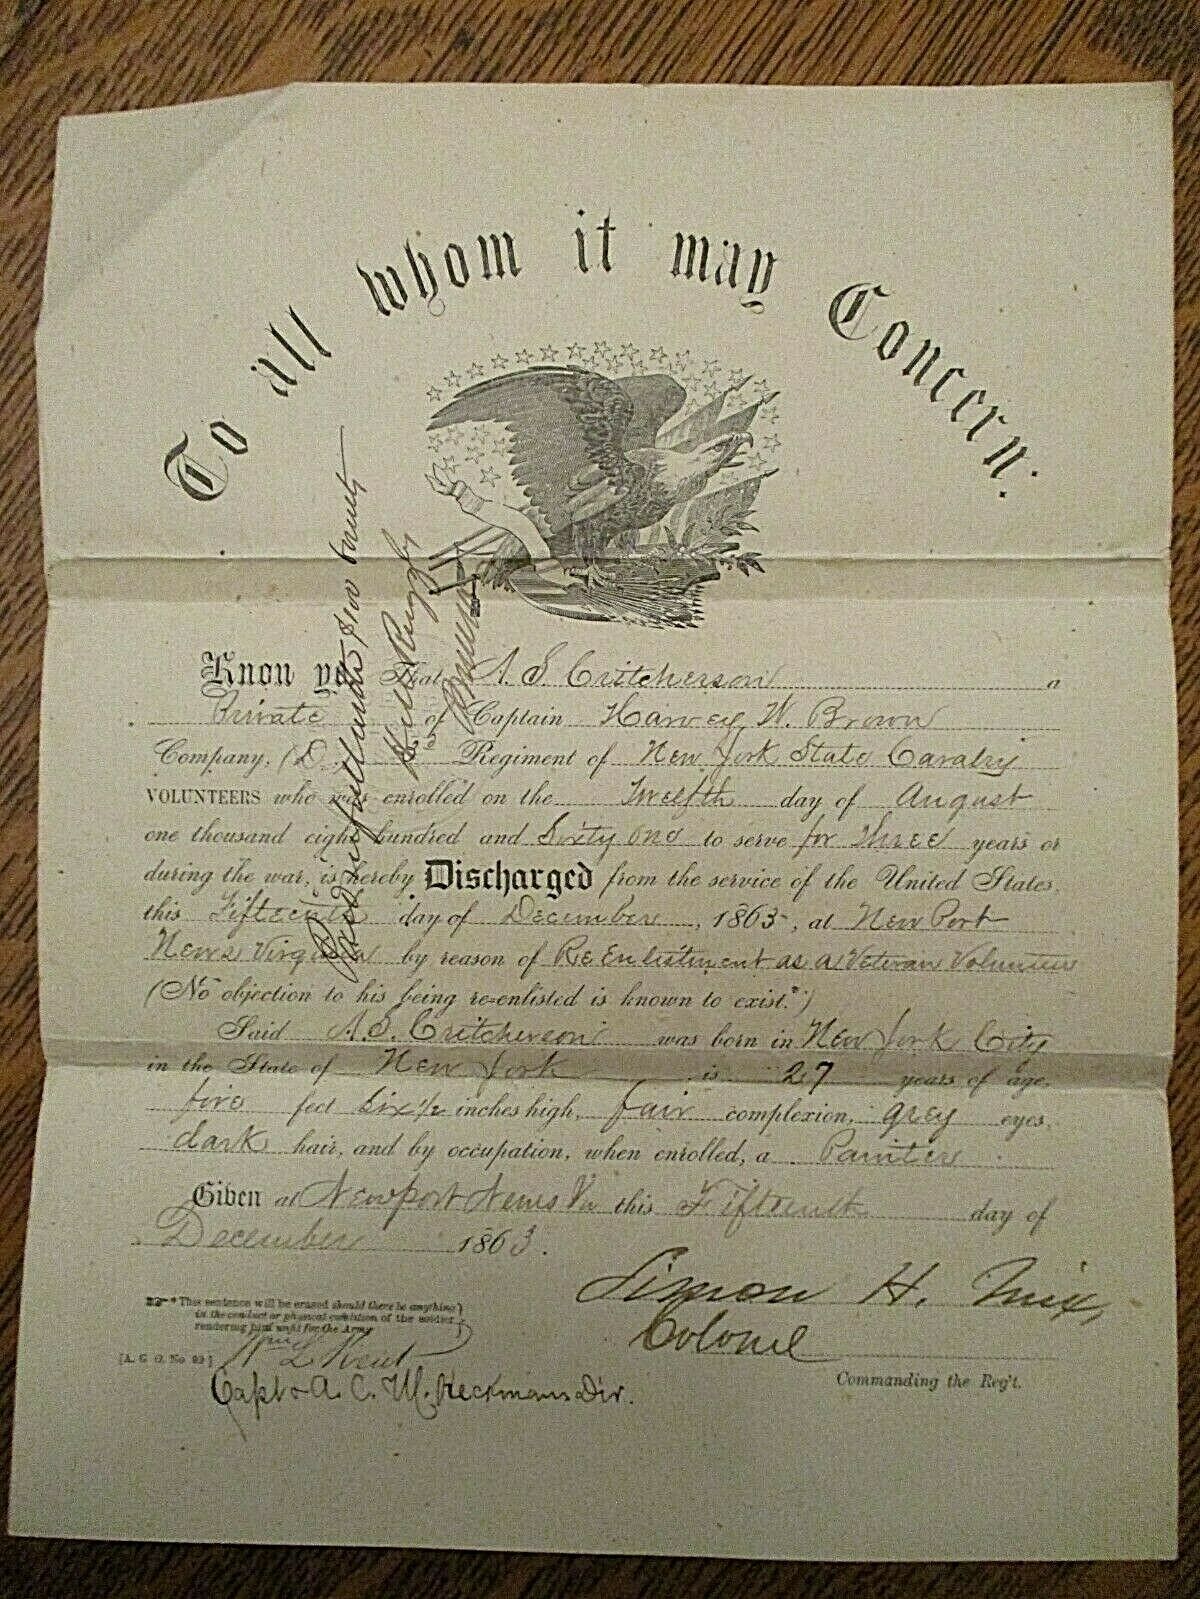 To all whom it may Concern:
Know ye That A. S. Critcherson a
Private of Captain Harvey W. Brown
Company, (D.) Regiment of New York State Cavalry
VOLUNTEERS who was enrolled on the Twelfth day of August
one thousand eight hundred and Sixty one to serve for Three years or
during the war, is hereby Discharged from the service of the United States,
this Fifteenth day of December, 1863, at New Port
News Virginia by reason of Re Enlistment as a Veteran Volunteer
(No objection to his being re-enlisted is known to exist.*)
Said A. S. Critcherson was born in New York City
in the State of New York is 27 years of age,
five feet six 1/2 inches high, fair complexion, grey eyes,
dark hair, and by occupation, when enrolled, a Painter.
Given at Newport News Va this Fifteenth day of
December 1863.
Simon H. Mix,
Colonel
Commanding the Reg't.
*This sentence will be erased should there be anything
in the conduct or physical condition of the soldier
rendering him unfit for the Army.
[A. G. O. No 99]
Wm L Kent
Capt & A. C. M. Heckmans Div.
Paid in full $100 bounty